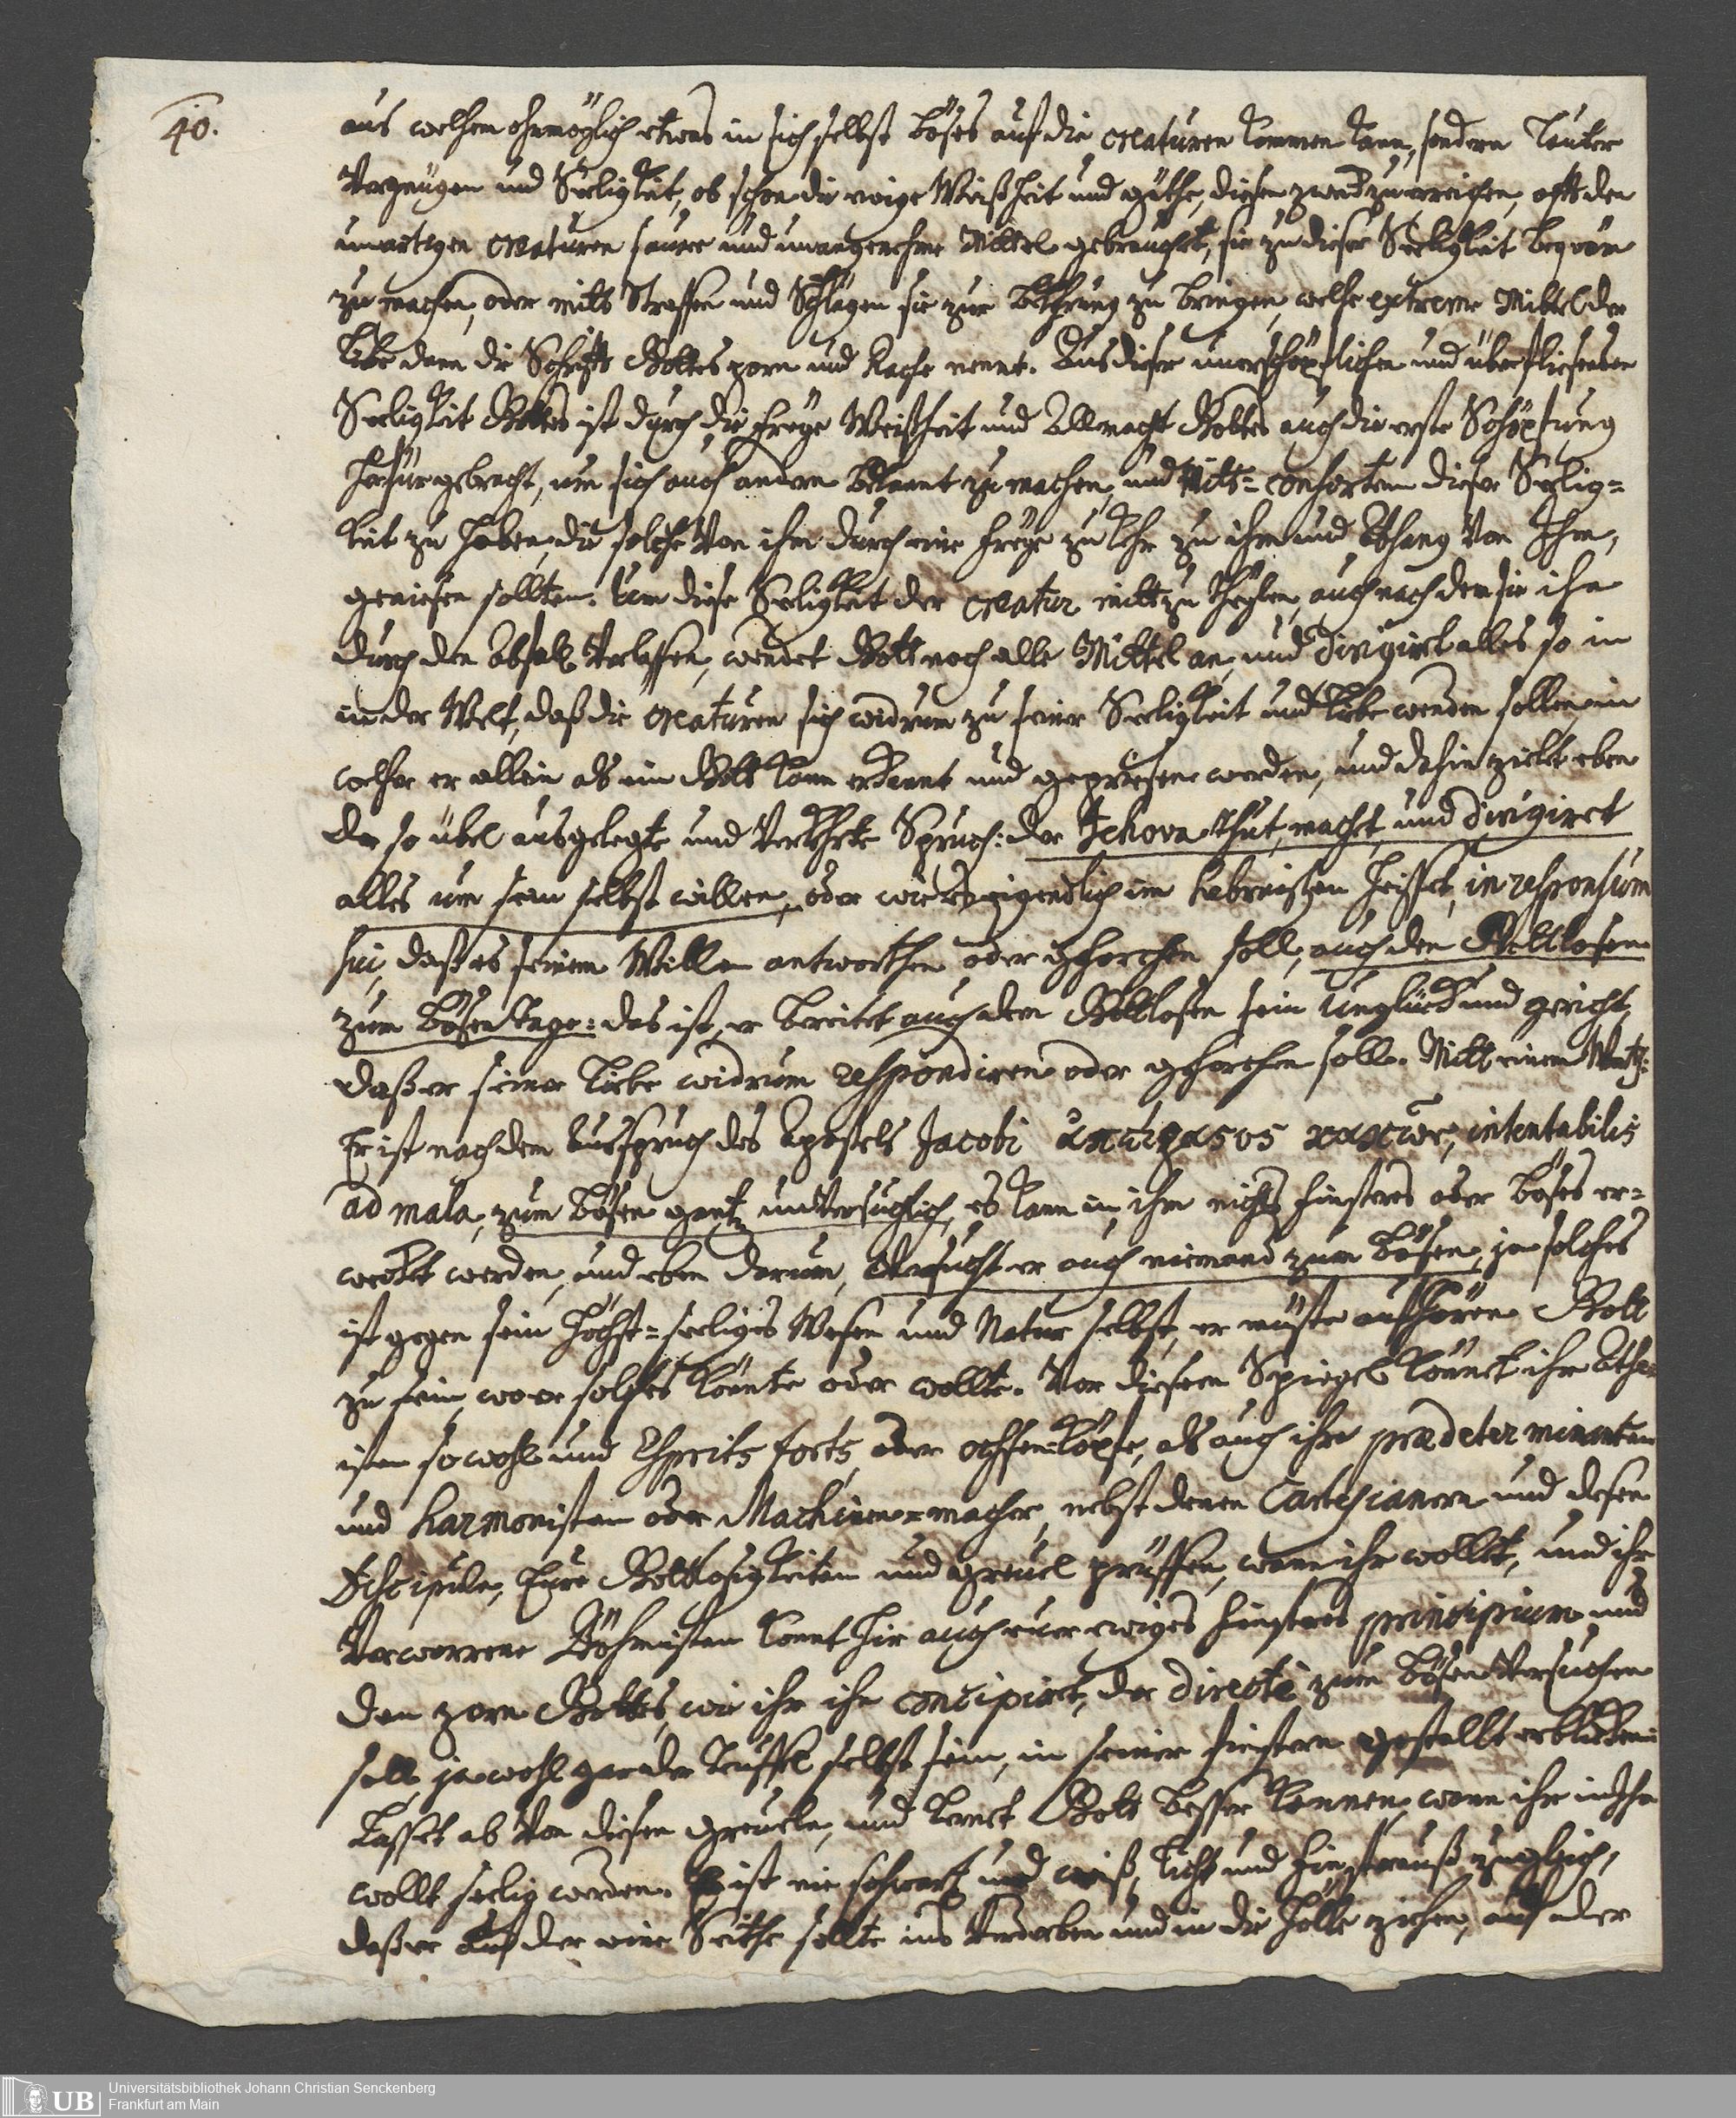 40.
aus welchem ohnmöglich etwas in sich selbst böses auf die creaturen kommen kann, sondern lauter
Vergnügen und Seeligkeit, ob schon die ewige Weißheit und güthe, diesen zweck zu erreichen, offt den
unartigen creaturen saure und unangenehme Mittel gebrauchet, sie zu dieser Seeligkeit bequem
zu machen, oder mitt Straffen und Schlägen sie zur bekehrung zu bringen, welche extreme Mittel der
Liebe dann die Schrifft Gottes zorn und Rache nennt. Aus dieser unerschöpflichen und überfliesenden
Seeligkeit Gottes ist durch die freye Weißheit und Allmacht Gottes auch die erste Schöpfung
herfürgebracht, um sich auch andern bekannt zu machen, und Mitt=consorten dieser Seelig=
keit zu haben, die solche von ihm durch eine freye zukehr zu ihm und abhang von Ihm,
geniesen sollten. Um diese Seeligkeit der creatur mittzutheylen, auch nach dem sie ihn
durch den abfall verlassen, wendet Gott noch alle Mittel an, und dirigirt alles so in
in der Welt, daß die creaturen sich widrum zu seiner Seeligkeit und Liebe wenden sollen, in
welcher er allein als ein Gott kann erkannt und gepriesen werden, und dahin zielet eben
der so übel ausgelegte und verkehrte Spruch: der Jehova thut, machet, und dirigiret
alles um sein selbst willen, oder wie es eigendlich im hebreischen heisset, in responsum
sui, daß es seinem Willen antworthen oder gehorchen soll, auch den Gottlosen
zum bösen Tage: das ist, er bereitet auch dem Gottlosen sein Unglück und gericht,
daß er seiner Liebe widrum respondiren oder gehorchen solle. Mitt einem Wort:
Er ist nach dem Ausspruch des Apostels Jacobi ἀπείραςος κακῶν, intentabilis
ad mala, zum bösen gantz unversuchlich, es kann in ihm nichts finsteres oder böses er=
weckt werden, und eben darum, versucht er auch niemand zum bösen, ja solches
ist gegen sein höchst=seeliges Wesen und Natur selbst, er müste aufhören Gott
zu sein, wo er solches könnte oder wollte. Vor diesem Spiegel könnet ihr Athe=
isten sowohl und Esprits forts, oder ochsen=köpfe, als auch ihr prædeterminanten
und harmonisten oder Machinen=macher, nebst denen Cartesianern und desen
Discipuln, Eure Gottlosigkeiten und greuel prüffen, wann ihr wollet, und ihr
verworrene Böhmisten könnt hir auch euer ewiges finsteres principium und
den zorn Gottes, wie ihr ihn concipiret, der directè zum bösen versuchen
soll, ja wohl gar der Teuffel selbst sein, in seiner finstern gestallt erblicken.
Lasset ab von diesen greueln, und lernet Gott besser kennen, wann ihr in Ihm
wollt seelig werden. Er ist nie schwartz und weiß, Licht und Finsternuß zugleich,
daß er auf der eine Seithe sollte ins Verderben und in die Hölle ziehen, auf der
UB
Universitätsbibliothek Johann Christian Senckenberg
Frankfurt am Main